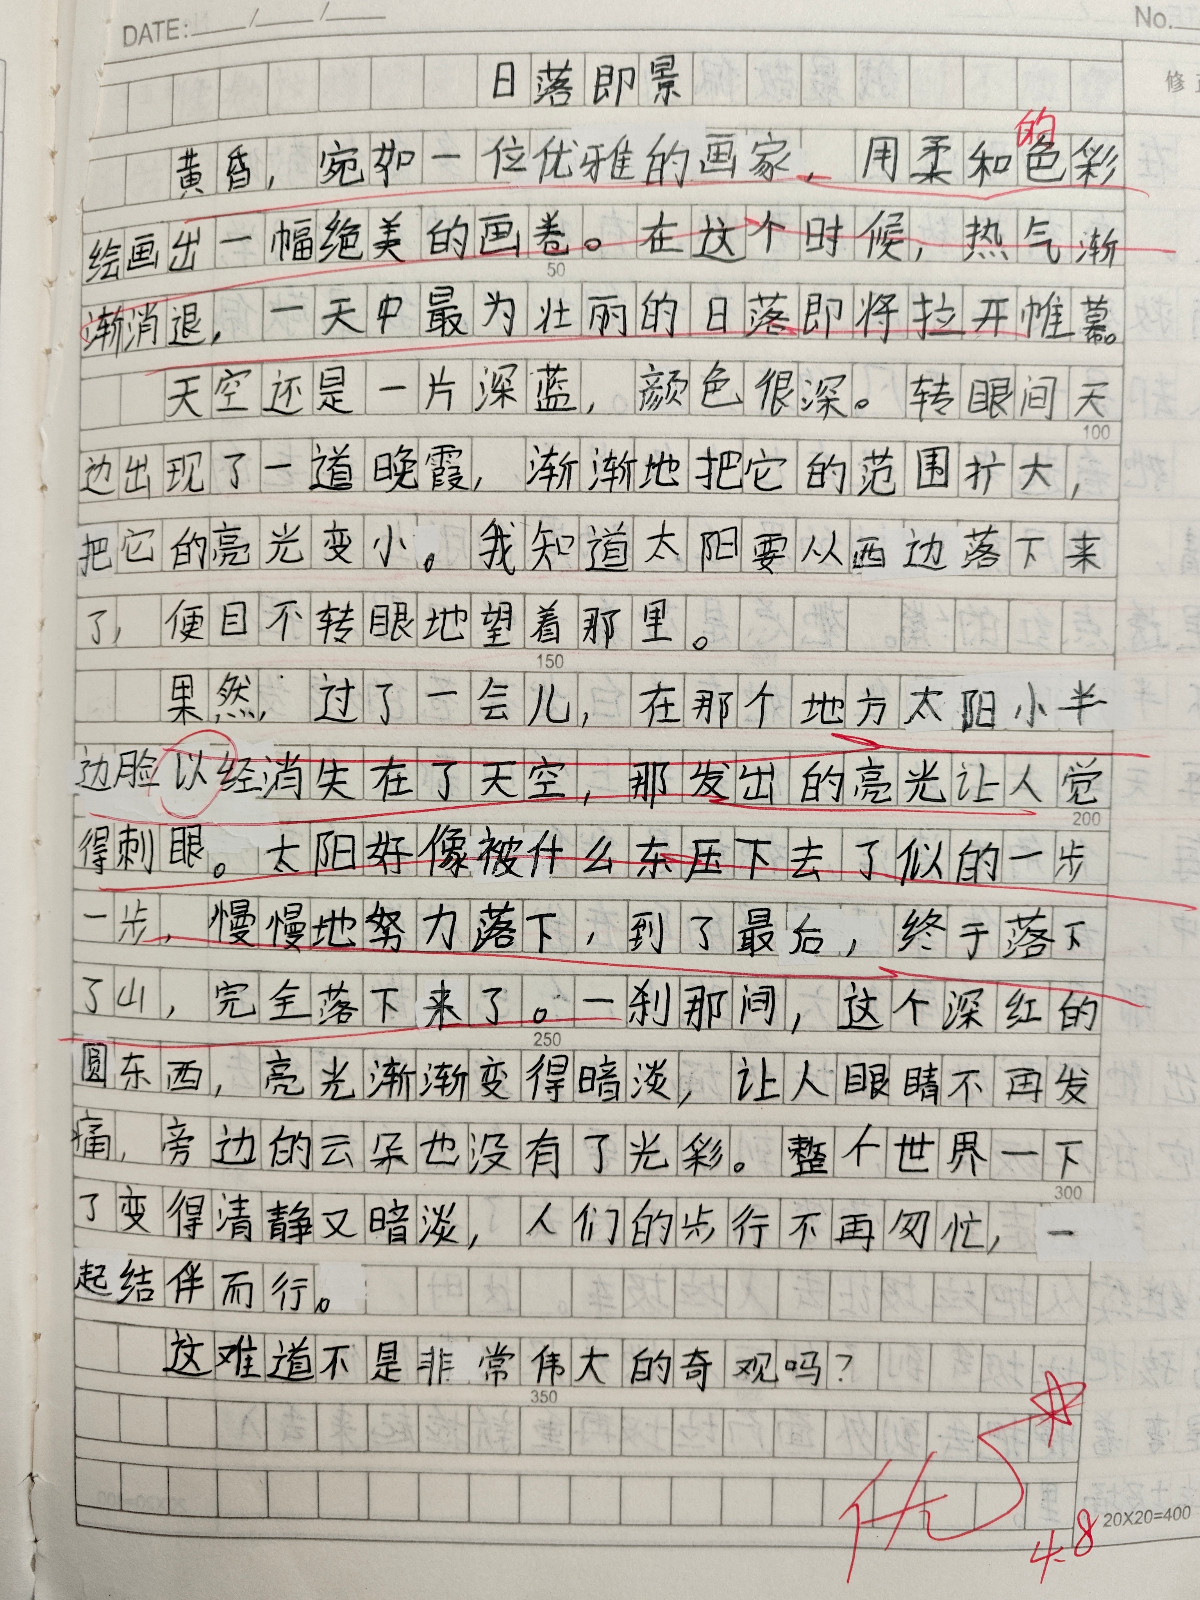 DATE: / /
No.
修正
日落即景
黄昏，宛如一位优雅的画家，用柔和的色彩
绘画出一幅绝美的画卷。在这个时候，热气渐
50
渐消退，一天中最为壮丽的日落即将拉开帷幕。
天空还是一片深蓝，颜色很深。转眼间天
100
边出现了一道晚霞，渐渐地把它的范围扩大，
把它的亮光变小。我知道太阳要从西边落下来
了，便目不转眼地望着那里。
150
果然，过了一会儿，在那个地方太阳小半
边脸以经消失在了天空，那发出的亮光让人觉
200
得刺眼。太阳好像被什么东压下去了似的一步
一步，慢慢地努力落下，到了最后，终于落下
了山，完全落下来了。一刹那间，这个深红的
250
圆东西，亮光渐渐变得暗淡，让人眼睛不再发
痛，旁边的云朵也没有了光彩。整个世界一下
300
了变得清静又暗淡，人们的步行不再匆忙，一
起结伴而行。
这难道不是非常伟大的奇观吗？
350
优
4.8
20X20=400